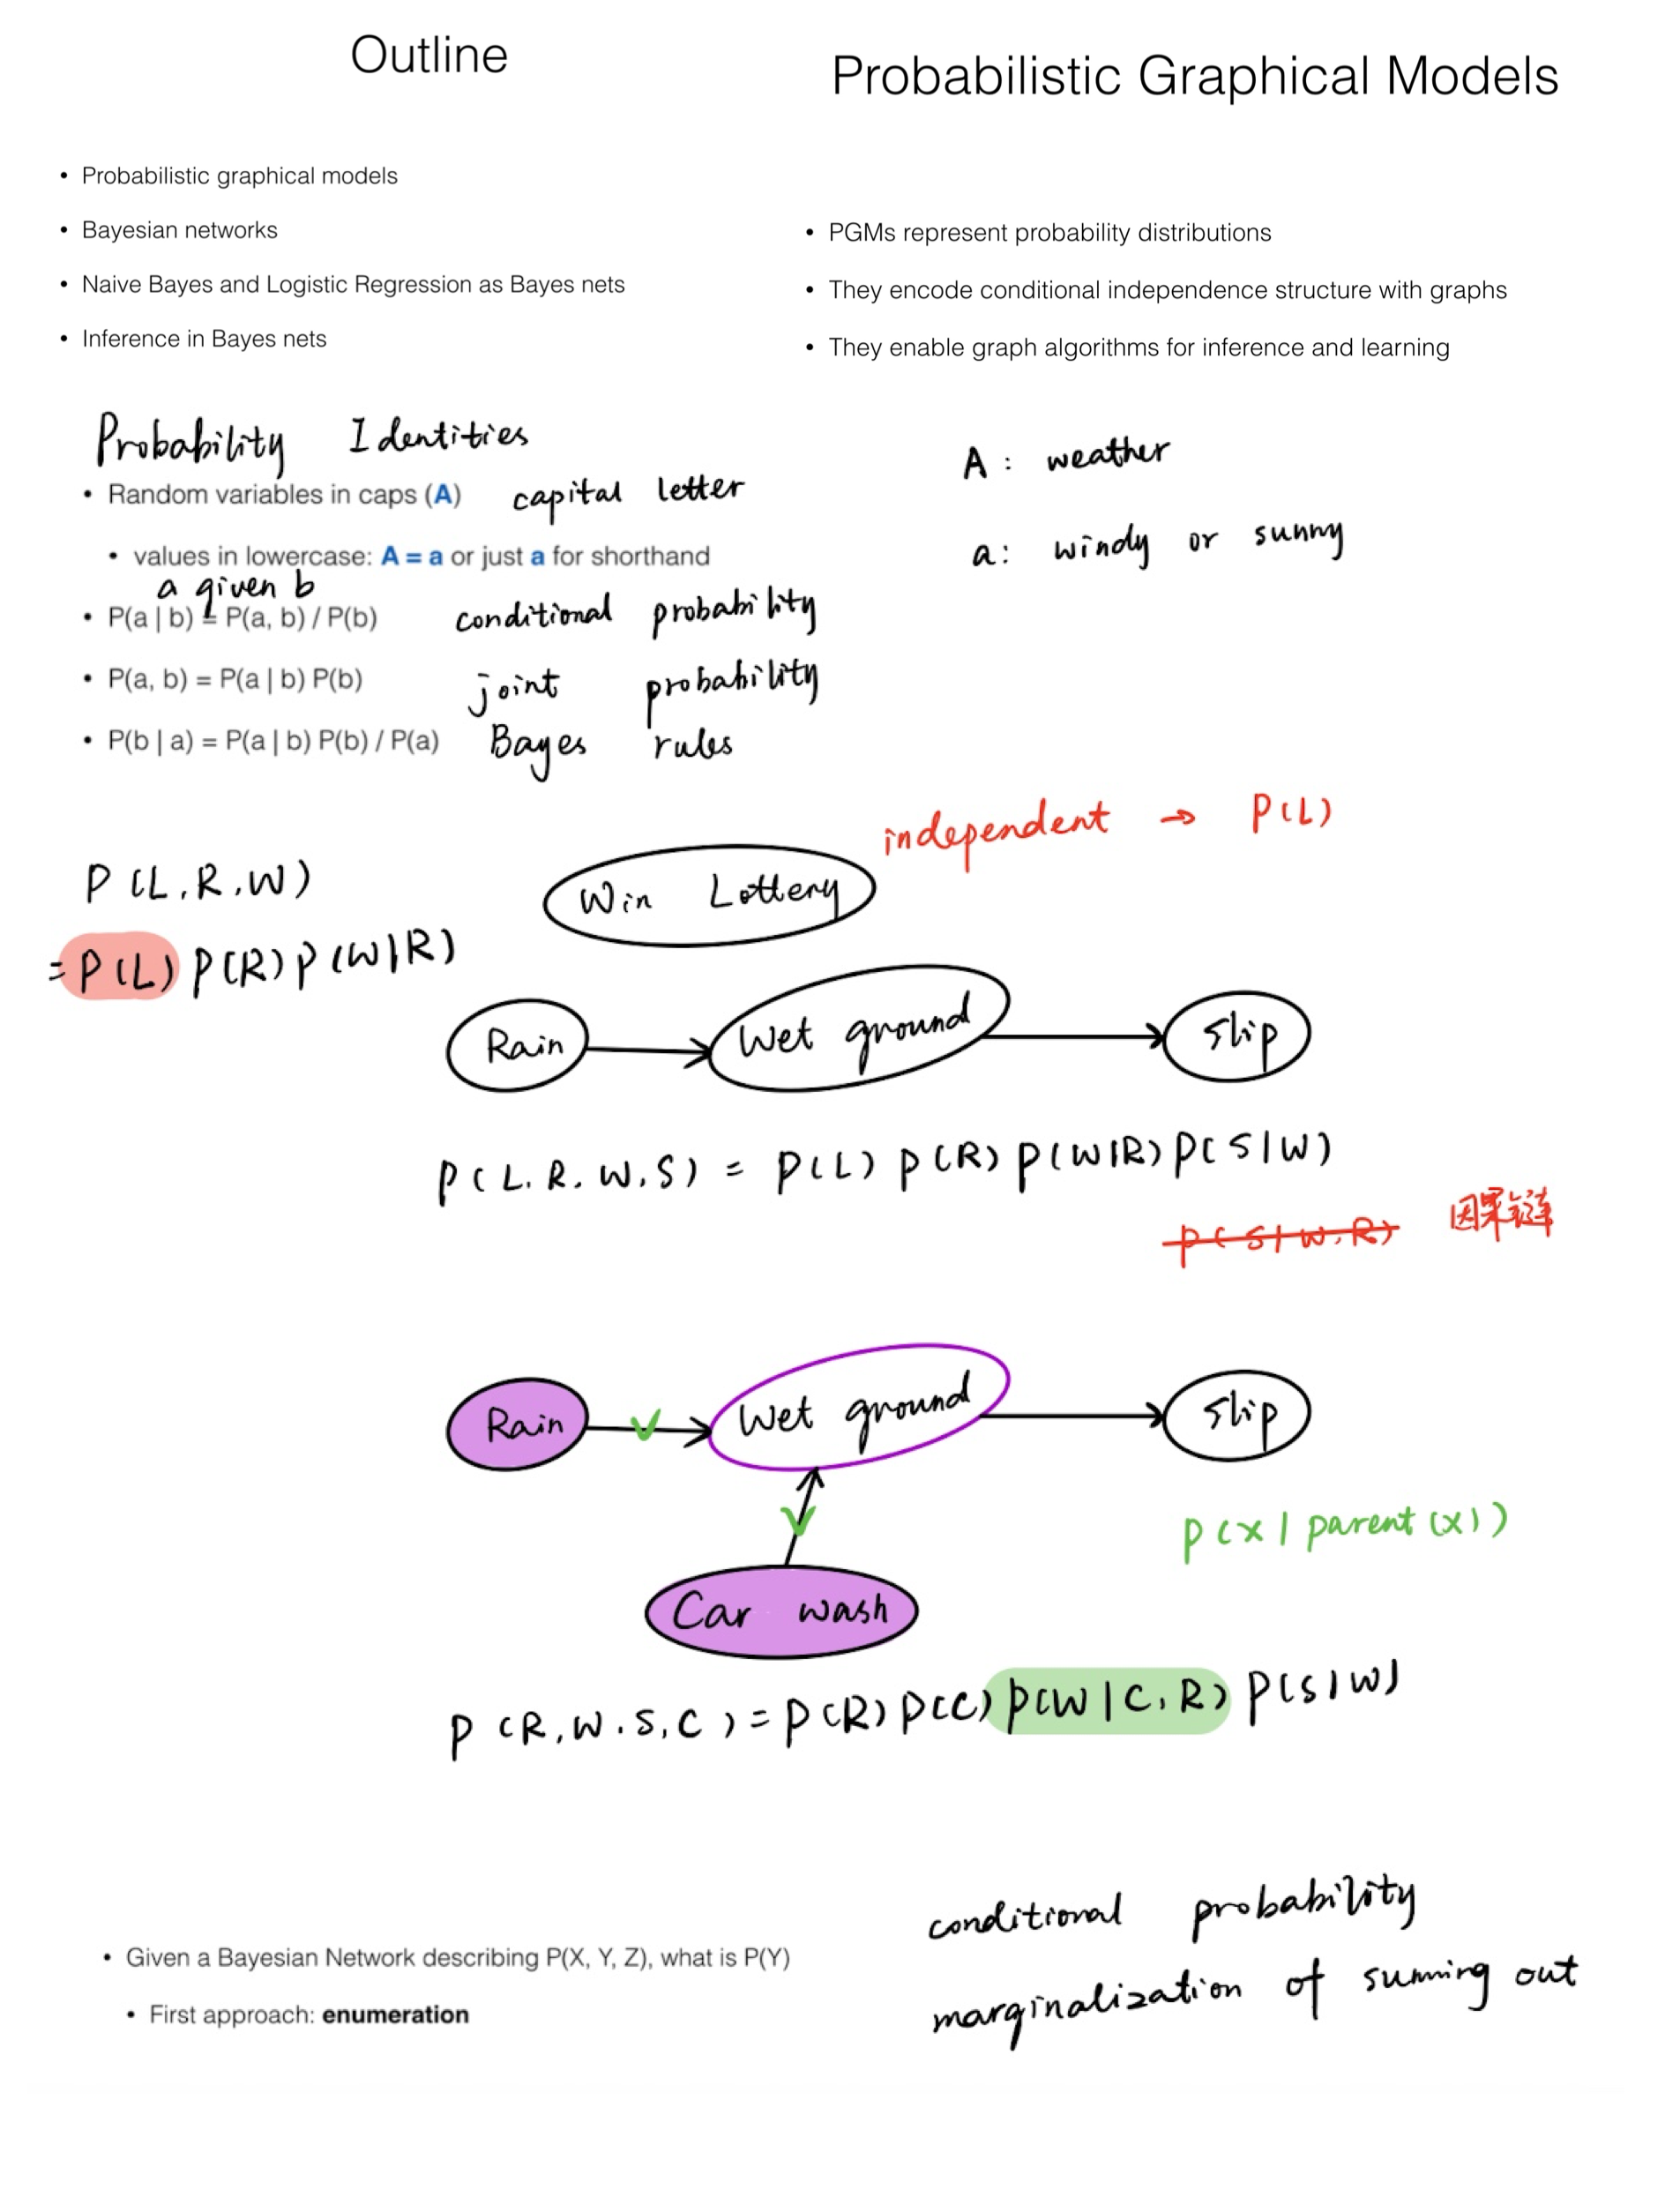 Outline
Probabilistic Graphical Models
• Probabilistic graphical models
• Bayesian networks
• Naive Bayes and Logistic Regression as Bayes nets
• Inference in Bayes nets
• PGMs represent probability distributions
• They encode conditional independence structure with graphs
• They enable graph algorithms for inference and learning
Probability Identities
• Random variables in caps (A) capital letter
• values in lowercase: A = a or just a for shorthand
a given b
• P(a | b) = P(a, b) / P(b) conditional probability
• P(a, b) = P(a | b) P(b) joint probability
• P(b | a) = P(a | b) P(b) / P(a) Bayes rules
A: weather
a: windy or sunny
independent → P(L)
P(L.R.W)
= P(L) P(R) P(W|R)
Win Lottery
Rain
Wet ground
Slip
P(L.R.W.S) = P(L) P(R) P(W|R) P(S|W)
P(S|W.R) 因果链
Rain
Wet ground
Slip
P(X | parent(X))
Car wash
P(R,W.S,C) = P(R) P(C) P(W|C,R) P(S|W)
• Given a Bayesian Network describing P(X, Y, Z), what is P(Y)
• First approach: enumeration
conditional probability
marginalization of suming out